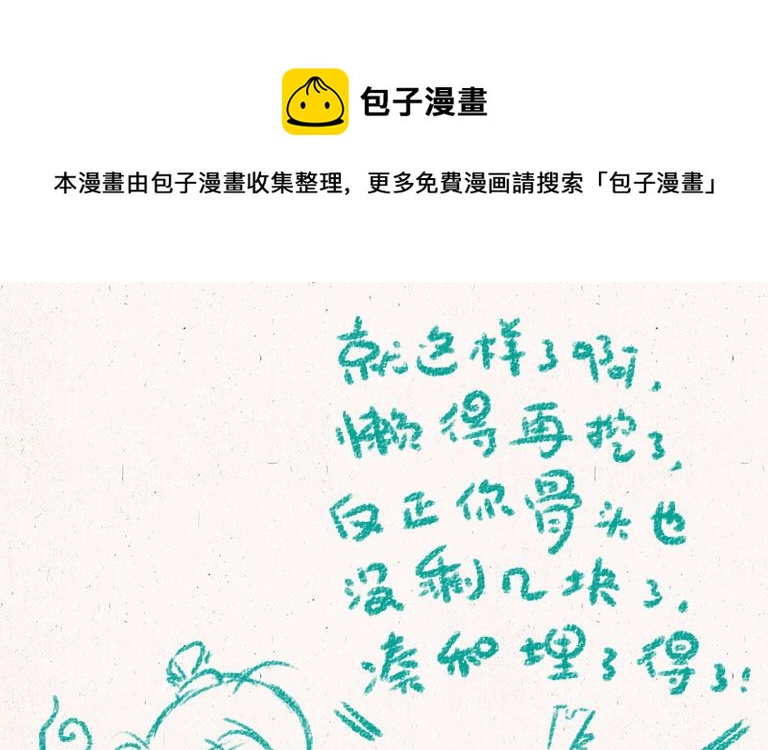 包子漫畫
本漫畫由包子漫畫收集整理，更多免費漫画請搜索「包子漫畫」
就这样了啊，
懒得再挖了，
反正你骨头也
没剩几块了，
凑和埋了得了！